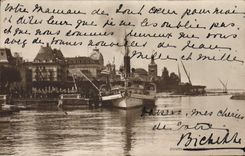 votre Maman de tout cœur pour moi
et dites leur que je ne les oublie pas
et que nous sommes heureux que vous
avez de bonnes nouvelles de Jean.
Mille et mille
baisers, mes chéries
de votre
Bichette